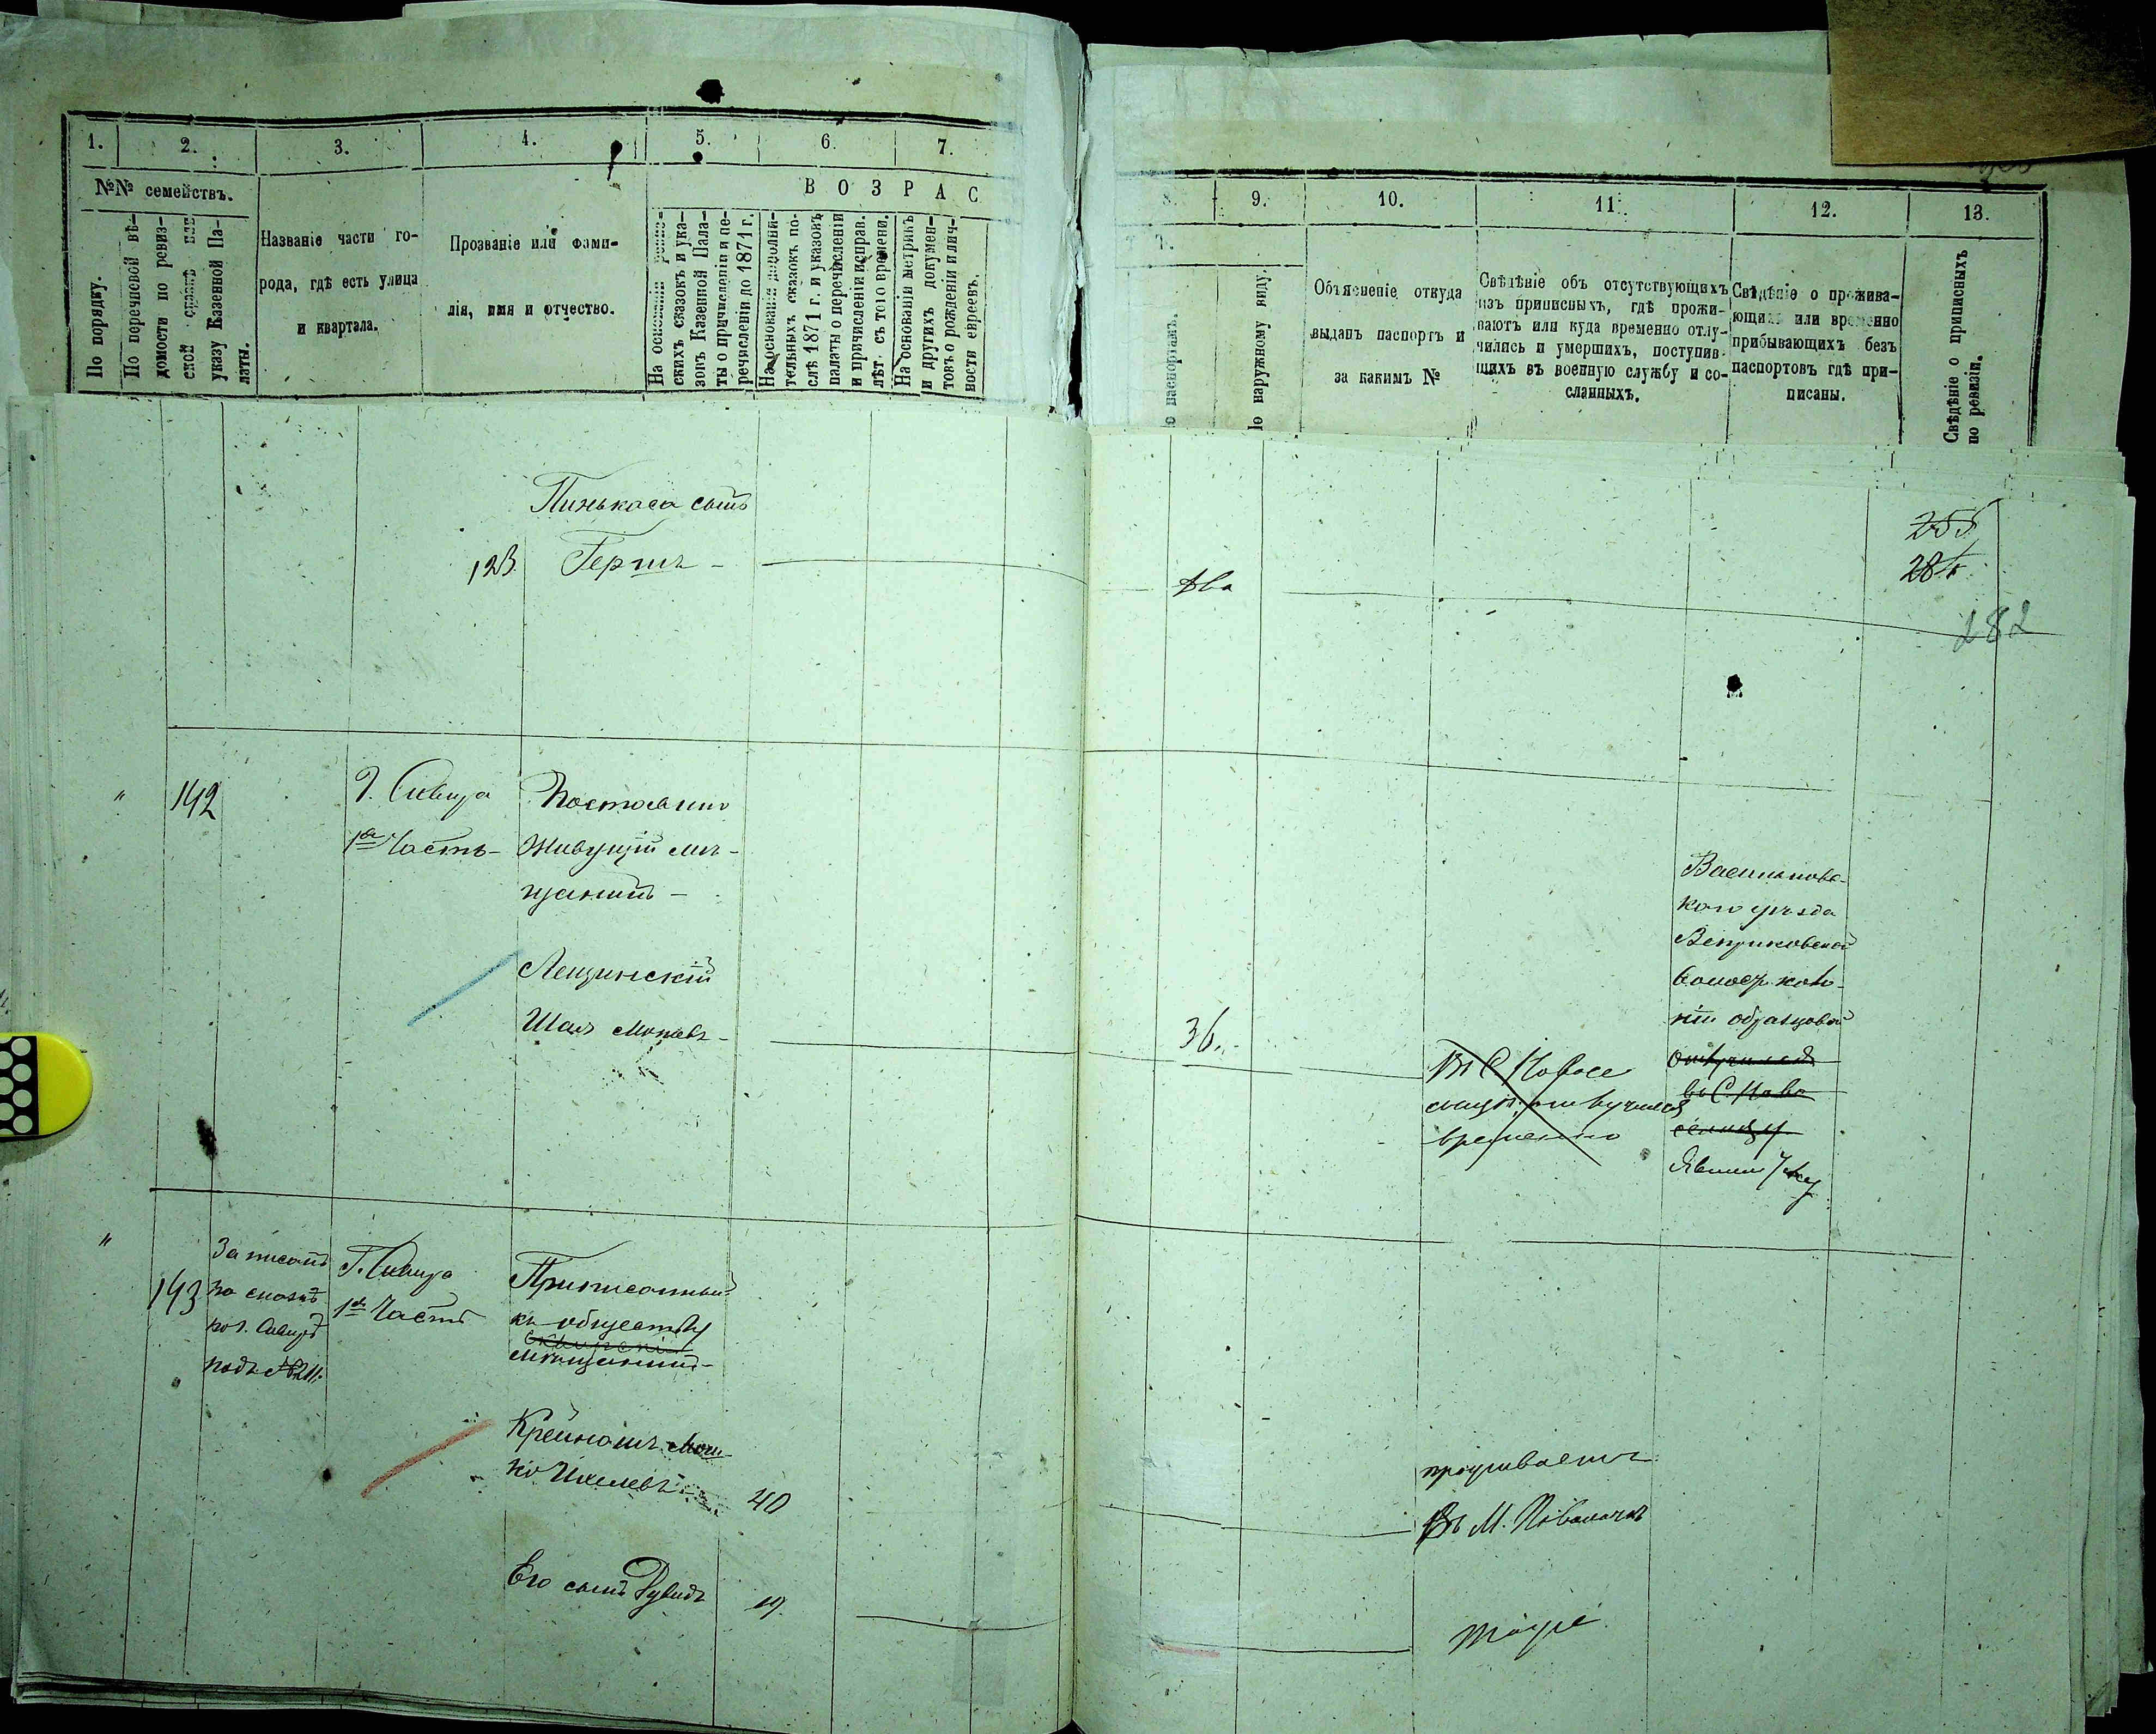 1. 2. 3. 4. 5. 6. 7.
№№ семействъ.
По порядку.
По поречневой вѣ-
домости по ревиз-
ской
указу Казенной Па-
латы.
Названіе части го-
рода, гдѣ есть улица
и квартала.
Прозваніе или фами-
лія, имя и отчество.
В О З Р А С
На основаніи
скихъ сказокъ и ука-
зовъ Казенной Пала-
ты о причисленіи и пе-
речисленіи до 1871 г.
На основаніи дополни-
тельныхъ сказокъ по-
слѣ 1871 г. и указовъ
палаты о перечисленіи
и причисленіи исправ.
лѣт. съ того времени.
На основаніи метрикъ
и другихъ докумен-
товъ о рожденіи и лич-
ности евреевъ.
8. 9. 10. 11. 12. 13.
Т Ъ.
По паспортамъ.
По наружному виду.
Объясненіе откуда
выданъ паспортъ и
за какимъ №
Свѣдѣніе объ отсутствующихъ
изъ приписныхъ, гдѣ прожи-
ваютъ или куда временно отлу-
чились и умершихъ, поступив-
щихъ въ военную службу и со-
сланныхъ.
Свѣдѣніе о прожива-
ющихъ или временно
прибывающихъ безъ
паспортовъ гдѣ при-
писаны.
Свѣдѣніе о приписныхъ
по ревизіи.
Пинькаса сынъ
123. Гершъ -
два
255
284
282
" 142
Г. Сквира
1я Часть-
Постоянно
Живущій мѣ-
щанинъ -
Лещинскій
Шая Мошевъ -
36.
Въ С. Новосе
лицу отлучился
временно
Васильковс-
каго уѣзда
волост. коло-
ніи образцовой
отлучился
въ С. Ново
селицу
"
143
Записанъ
по сказкѣ
по г. Сквирѣ
подъ №211.
Г. Сквира
1я Часть
Приписанный
къ обществу
Сквирскій
мѣщанинъ -
Крейнашъ Мош-
ко Ихелевъ -
40
проживаетъ
Въ М. Паволочѣ
Его сынъ Дувидъ
19.
тоже